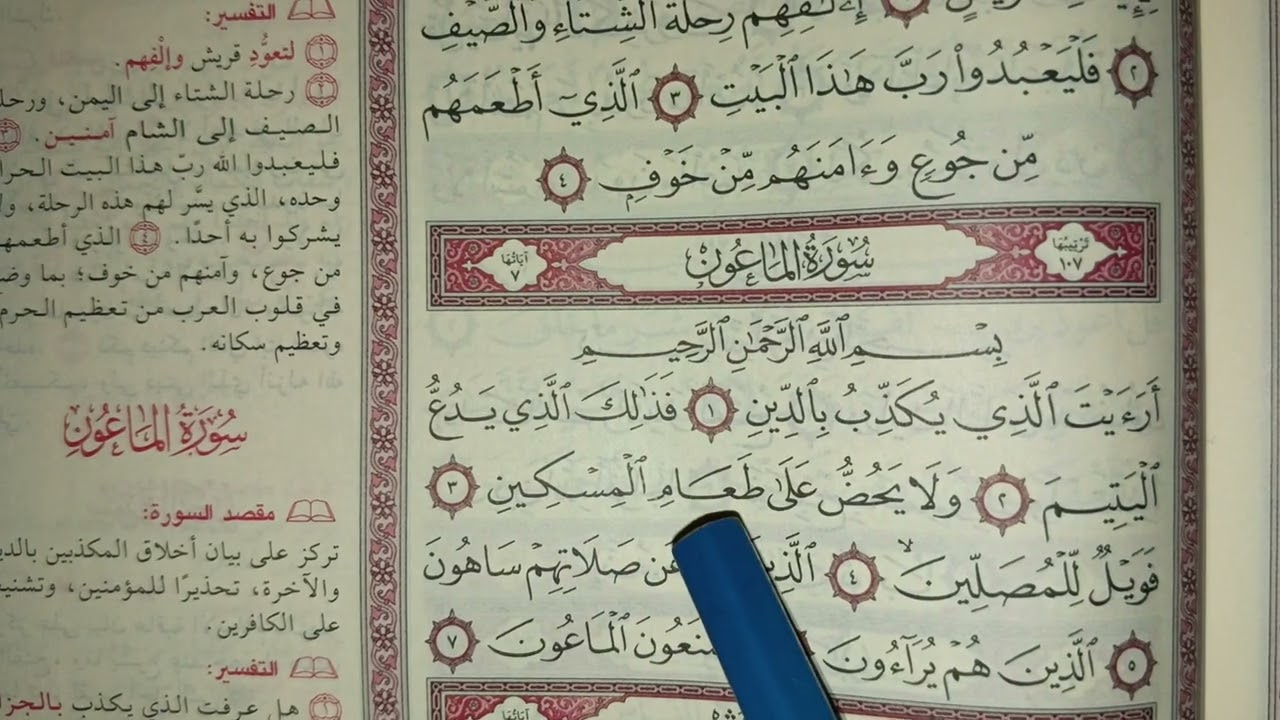 إِۦلَٰفِهِمْ رِحْلَةَ ٱلشِّتَآءِ وَٱلصَّيْفِ
٢ فَلْيَعْبُدُوا۟ رَبَّ هَٰذَا ٱلْبَيْتِ ٣ ٱلَّذِيٓ أَطْعَمَهُم
مِّن جُوعٍ وَءَامَنَهُم مِّنْ خَوْفٍ ٤
تَرْتِيبُهَا ١٠٧ سُورَةُ المَاعُونِ آيَاتُهَا ٧
بِسْمِ ٱللَّهِ ٱلرَّحْمَٰنِ ٱلرَّحِيمِ
أَرَءَيْتَ ٱلَّذِي يُكَذِّبُ بِٱلدِّينِ ١ فَذَٰلِكَ ٱلَّذِي يَدُعُّ
ٱلْيَتِيمَ ٢ وَلَا يَحُضُّ عَلَىٰ طَعَامِ ٱلْمِسْكِينِ ٣
فَوَيْلٌ لِّلْمُصَلِّينَ ٤ عَن صَلَاتِهِمْ سَاهُونَ
٥ ٱلَّذِينَ هُمْ يُرَآءُونَ ٱلْمَاعُونَ ٧
آيَاتُهَا
التفسير:
١ لتعوُّدِ قريش وإلْفِهم.
٢ رحلة الشتاء إلى اليمن، ورحلة
الصيف إلى الشام آمنين. ٣
فليعبدوا الله ربّ هذا البيت
وحده، الذي يسَّر لهم هذه الرحلة،
يشركوا به أحدًا. ٤ الذي أطعمهم
من جوع، وآمنهم من خوف؛ بما
في قلوب العرب من تعظيم الحرم
وتعظيم سكانه.
سُورَةُ المَاعُونِ
مقصد السورة:
تركز على بيان أخلاق المكذبين
والآخرة، تحذيرًا للمؤمنين،
على الكافرين.
التفسير:
١ هل عرفت الذي يكذب